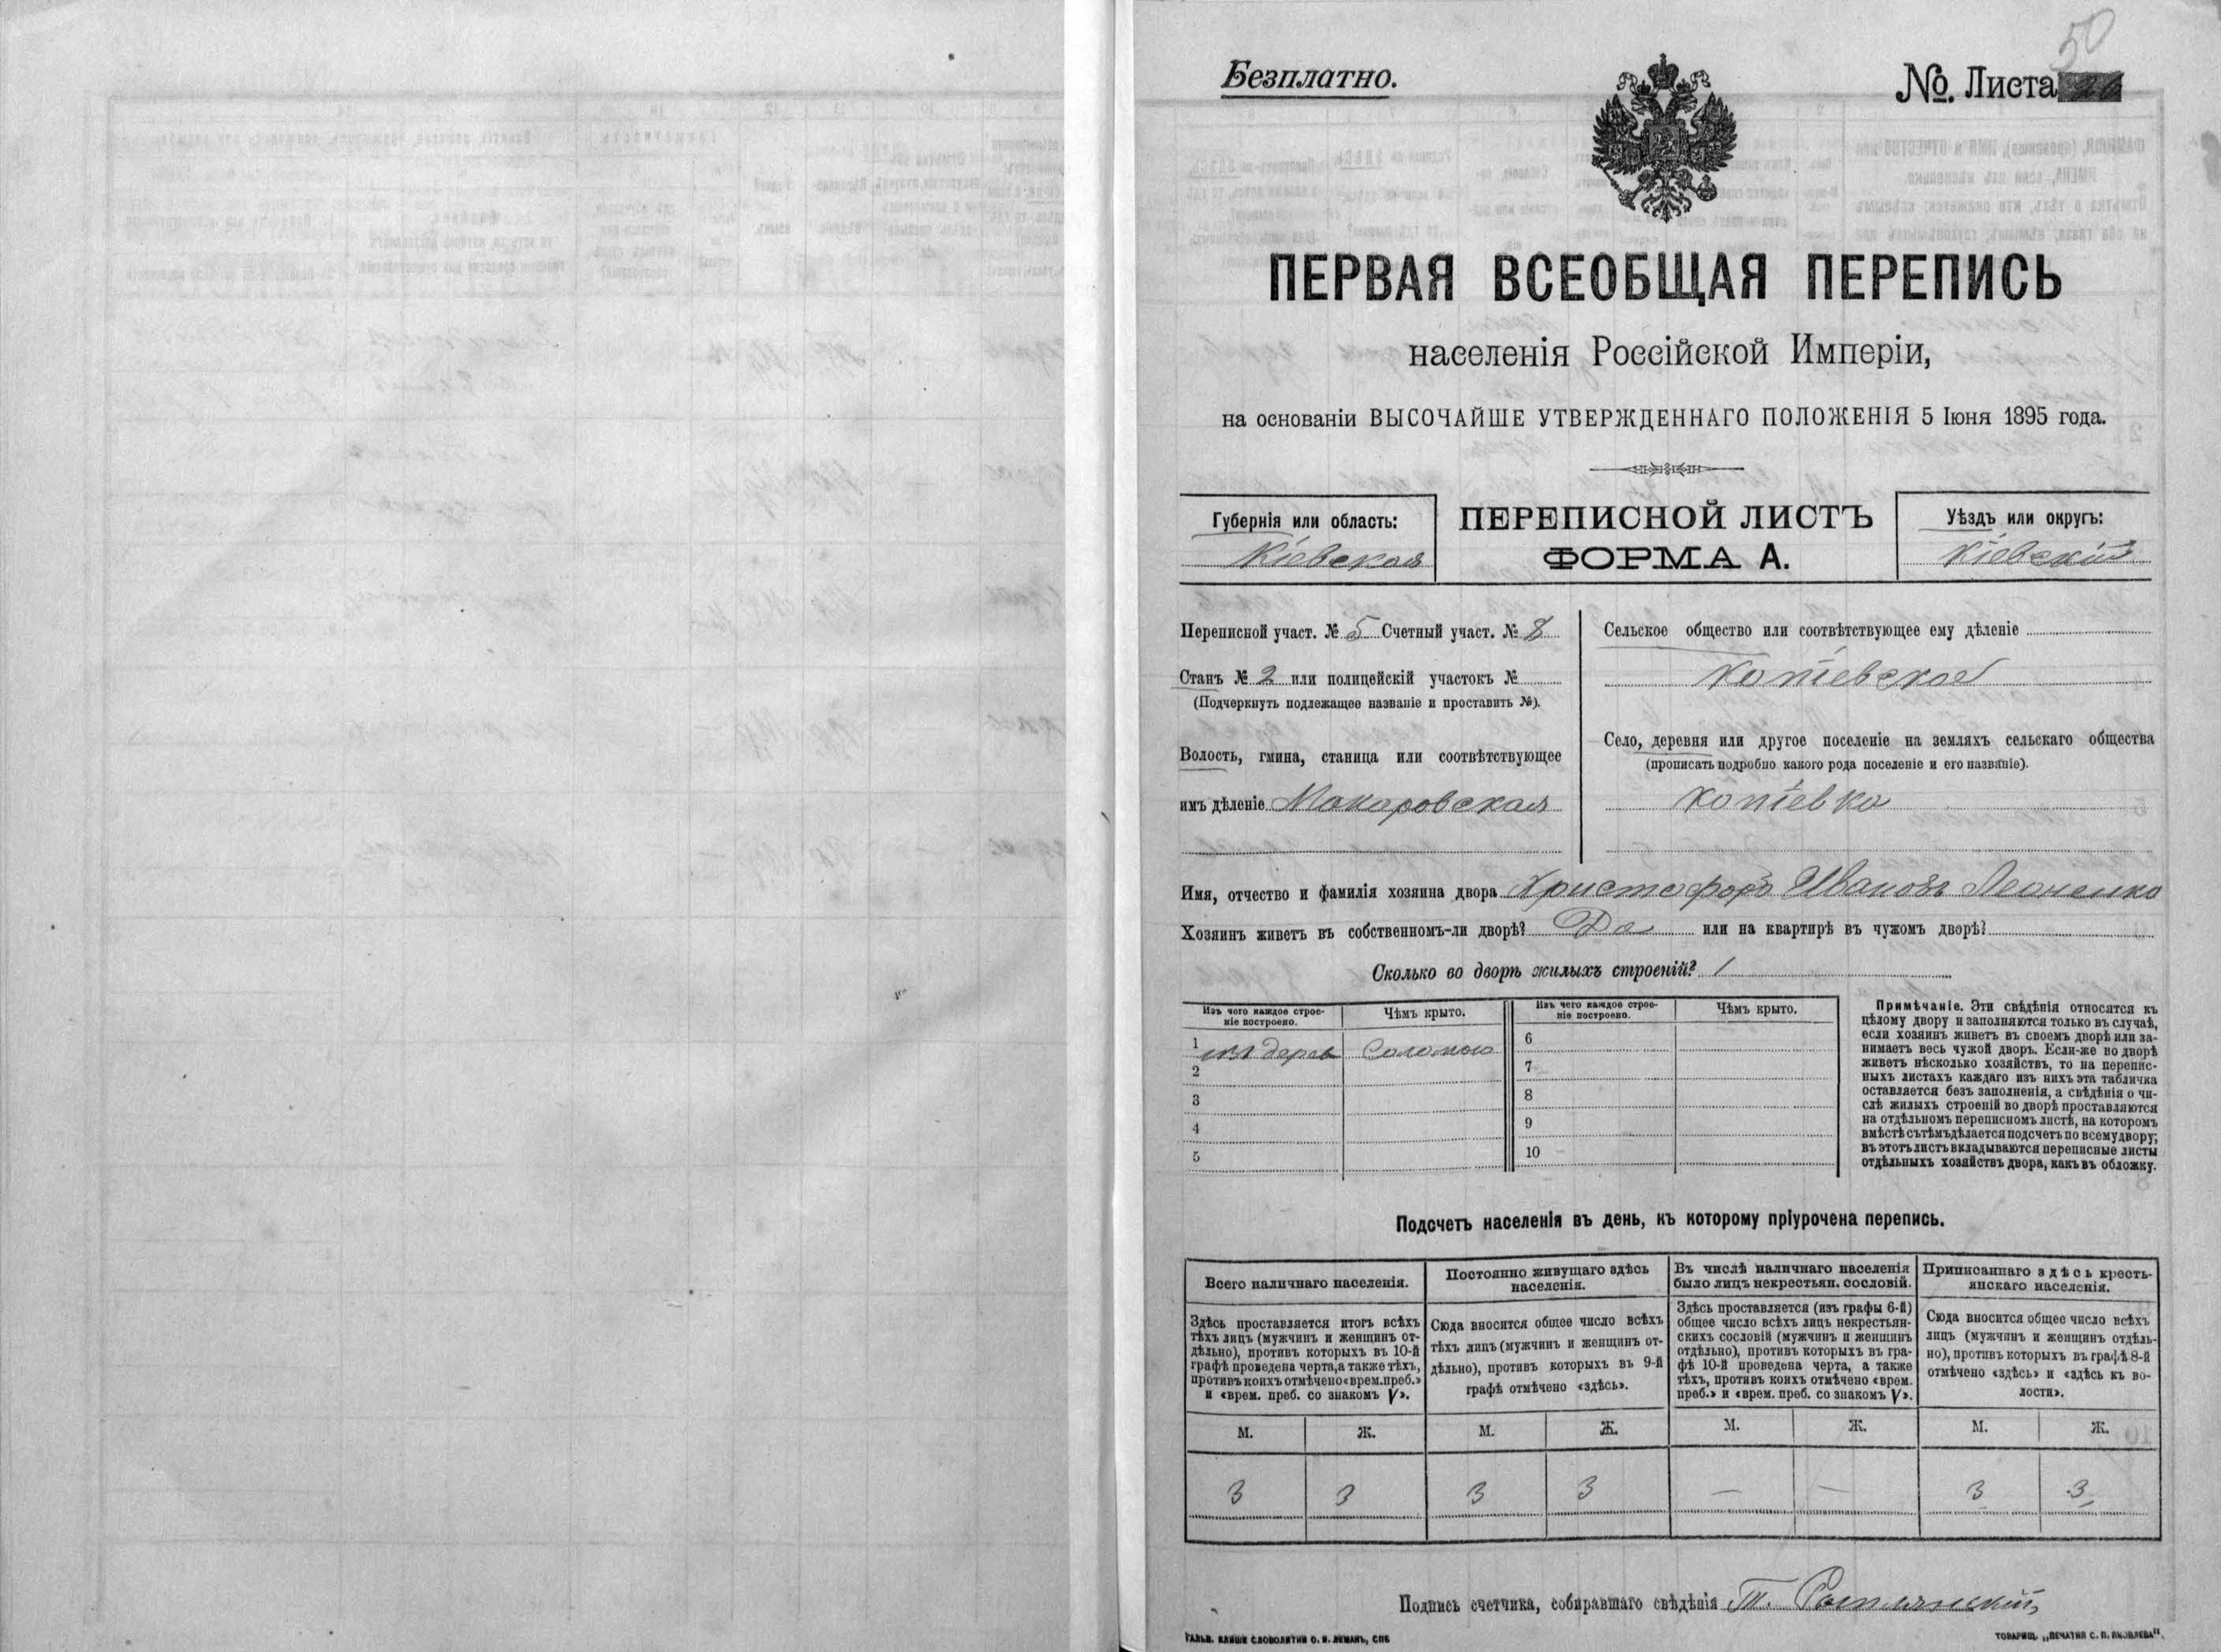 50
Безплатно.
№. Листа
ПЕРВАЯ ВСЕОБЩАЯ ПЕРЕПИСЬ
населенія Россійской Имперіи,
на основаніи ВЫСОЧАЙШЕ УТВЕРЖДЕННАГО ПОЛОЖЕНІЯ 5 Іюня 1895 года.
Губернія или область:
Кіевская
ПЕРЕПИСНОЙ ЛИСТЪ
ФОРМА А.
Уѣздъ или округъ:
Кіевскій
Переписной участ. № 5 Счетный участ. № 8
Станъ № 2 или полицейскій участокъ №
(Подчеркнуть подлежащее названіе и проставить №).
Волость, гмина, станица или соотвѣтствующее
имъ дѣленіе Макаровская
Сельское общество или соотвѣтствующее ему дѣленіе
Копіевское
Село, деревня или другое поселеніе на земляхъ сельскаго общества
(прописать подробно какого рода поселеніе и его названіе).
Копіевка
Имя, отчество и фамилія хозяина двора Христофоръ Ивановъ Леоненко
Хозяинъ живетъ въ собственномъ-ли дворѣ? Да или на квартирѣ въ чужомъ дворѣ?
Сколько во дворѣ жилыхъ строеній? 1
Изъ чего каждое строе-
ніе построено.
Чѣмъ крыто.
Изъ чего каждое строе-
ніе построено.
Чѣмъ крыто.
1 изъ дерев Соломою 6
2 7
3 8
4 9
5 10
Примѣчаніе. Эти свѣдѣнія относятся къ
цѣлому двору и заполняются только въ случаѣ,
если хозяинъ живетъ въ своемъ дворѣ или за-
нимаетъ весь чужой дворъ. Если-же во дворѣ
живетъ нѣсколько хозяйствъ, то на перепис-
ныхъ листахъ каждаго изъ нихъ эта табличка
оставляется безъ заполненія, а свѣдѣнія о чи-
слѣ жилыхъ строеній во дворѣ проставляются
на отдѣльномъ переписномъ листѣ, на которомъ
вмѣстѣ съ тѣмъ дѣлается подсчетъ по всему двору;
въ этотъ листъ вкладываются переписные листы
отдѣльныхъ хозяйствъ двора, какъ въ обложку.
Подсчетъ населенія въ день, къ которому пріурочена перепись.
Всего наличнаго населенія.
Здѣсь проставляется итогъ всѣхъ
тѣхъ лицъ (мужчинъ и женщинъ от-
дѣльно), противъ которыхъ въ 10-й
графѣ проведена черта, а также тѣхъ,
противъ коихъ отмѣчено «врем. преб.»
и «врем. преб. со знакомъ V».
Постоянно живущаго здѣсь
населенія.
Сюда вносится общее число всѣхъ
тѣхъ лицъ (мужчинъ и женщинъ от-
дѣльно), противъ которыхъ въ 9-й
графѣ отмѣчено «здѣсь».
Въ числѣ наличнаго населенія
было лицъ некрестьян. сословій.
Здѣсь проставляется (изъ графы 6-й)
общее число всѣхъ лицъ некрестьян-
скихъ сословій (мужчинъ и женщинъ
отдѣльно), противъ которыхъ въ гра-
фѣ 10-й проведена черта, а также
тѣхъ, противъ коихъ отмѣчено «врем.
преб.» и «врем. преб. со знакомъ V».
Приписаннаго здѣсь кресть-
янскаго населенія.
Сюда вносится общее число всѣхъ
лицъ (мужчинъ и женщинъ отдѣль-
но), противъ которыхъ въ графѣ 8-й
отмѣчено «здѣсь» и «здѣсь къ во-
лости».
М. Ж. М. Ж. М. Ж. М. Ж.
3 3 3 3 — — 3 3
Подпись счетчика, собиравшаго свѣдѣнія Т.
ГАЛЬВ. КЛИШЕ СЛОВОЛИТНИ О. И. ЛЕМАНЪ, СПБ
ТОВАРИЩ. „ПЕЧАТНЯ С. П. ЯКОВЛЕВА".